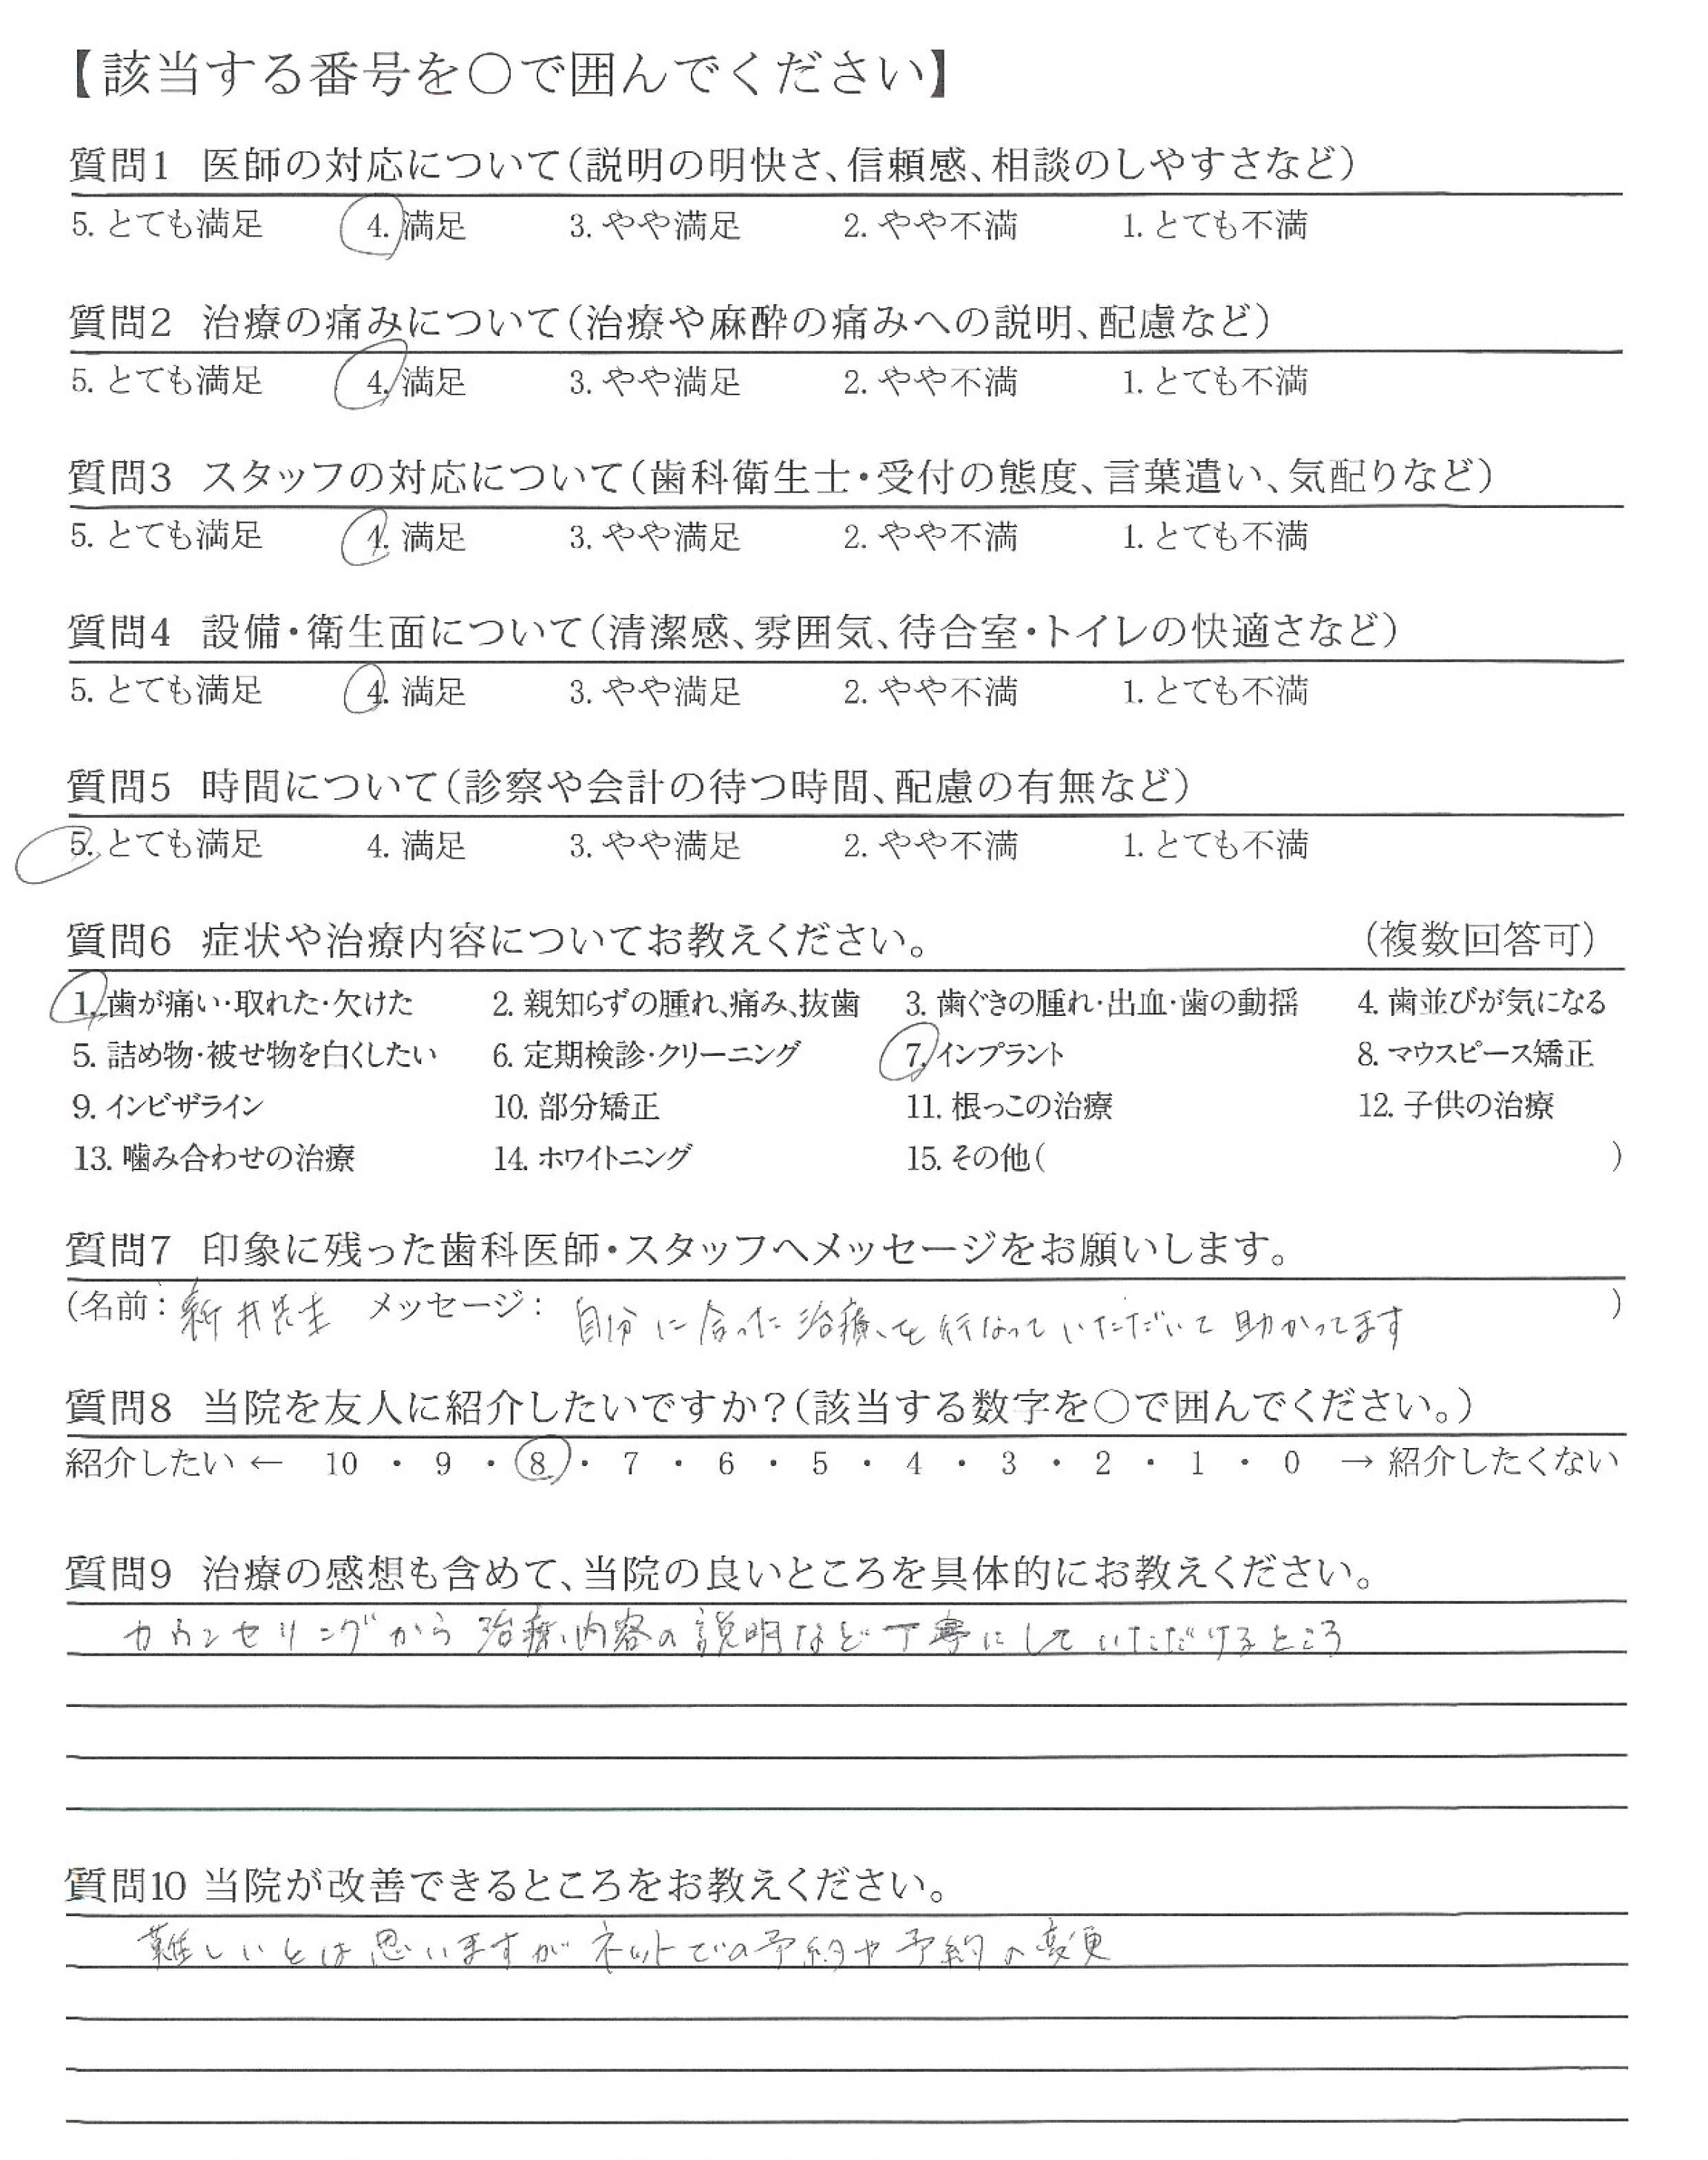 【該当する番号を○で囲んでください】
質問1 医師の対応について（説明の明快さ、信頼感、相談のしやすさなど）
5. とても満足 4. 満足 3. やや満足 2. やや不満 1. とても不満
質問2 治療の痛みについて（治療や麻酔の痛みへの説明、配慮など）
5. とても満足 4. 満足 3. やや満足 2. やや不満 1. とても不満
質問3 スタッフの対応について（歯科衛生士・受付の態度、言葉遣い、気配りなど）
5. とても満足 4. 満足 3. やや満足 2. やや不満 1. とても不満
質問4 設備・衛生面について（清潔感、雰囲気、待合室・トイレの快適さなど）
5. とても満足 4. 満足 3. やや満足 2. やや不満 1. とても不満
質問5 時間について（診察や会計の待つ時間、配慮の有無など）
5. とても満足 4. 満足 3. やや満足 2. やや不満 1. とても不満
質問6 症状や治療内容についてお教えください。 （複数回答可）
1. 歯が痛い・取れた・欠けた 2. 親知らずの腫れ、痛み、抜歯 3. 歯ぐきの腫れ・出血・歯の動揺 4. 歯並びが気になる
5. 詰め物・被せ物を白くしたい 6. 定期検診・クリーニング 7. インプラント 8. マウスピース矯正
9. インビザライン 10. 部分矯正 11. 根っこの治療 12. 子供の治療
13. 噛み合わせの治療 14. ホワイトニング 15. その他（ ）
質問7 印象に残った歯科医師・スタッフへメッセージをお願いします。
（名前：新井先生 メッセージ：自分に合った治療を行なっていただいて助かってます ）
質問8 当院を友人に紹介したいですか？（該当する数字を○で囲んでください。）
紹介したい ← 10 ・ 9 ・ 8 ・ 7 ・ 6 ・ 5 ・ 4 ・ 3 ・ 2 ・ 1 ・ 0 → 紹介したくない
質問9 治療の感想も含めて、当院の良いところを具体的にお教えください。
カウンセリングから治療内容の説明など丁寧にしていただけるところ
質問10 当院が改善できるところをお教えください。
難しいとは思いますがネットでの予約や予約の変更